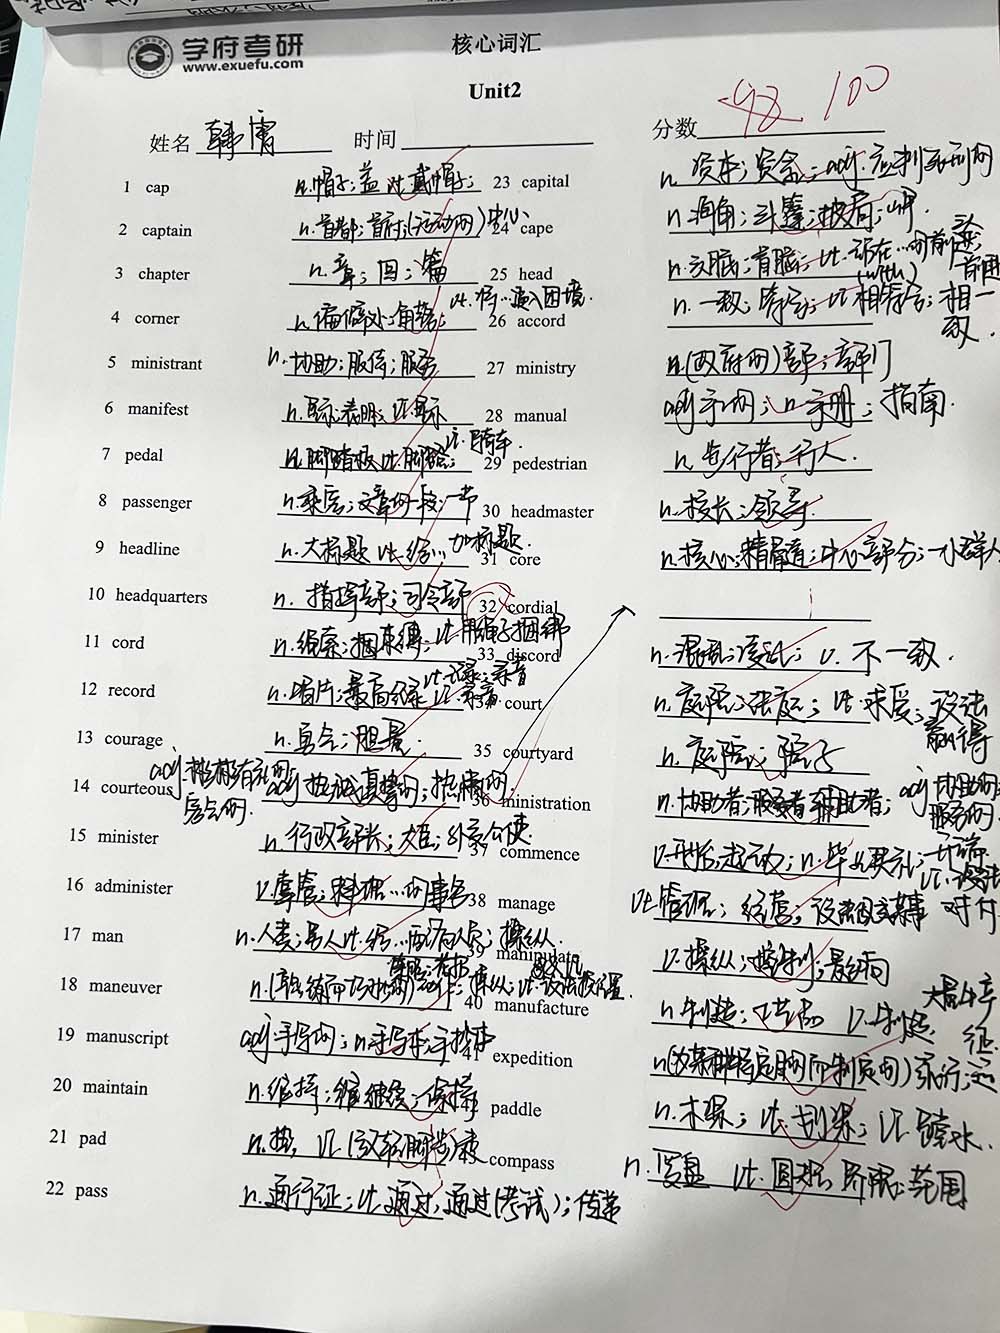 学府考研
www.exuefu.com
核心词汇
Unit2
98 100
姓名 韩雪 时间 分数
1 cap n.帽子;盖 vt.戴帽子;
23 capital n.资本;资金;adj.应判死刑的
2 captain n.首都;首府;(活动的)中心
24 cape n.海角;斗篷;披肩;岬.
3 chapter n.章;回;篇
25 head n.头脑;首脑;vt.站在…的前头
4 corner n.偏僻处;角落; vt.将…逼入困境.
26 accord n.一致;符合;vi.相符合;相一致.
5 ministrant n.协助;服侍;服务
27 ministry n.(政府的)部;部门
6 manifest n.显示;表明;vt.显示
28 manual adj.手的;n.手册;指南.
7 pedal n.脚踏板 vt.脚踏; vi.骑车
29 pedestrian n.步行者;行人.
8 passenger n.乘客;文章的一段;一节
30 headmaster n.校长;领导.
9 headline n.大标题 vt.给…加标题.
31 core n.核心;精髓;中心部分;一小群人
10 headquarters n.指挥部;司令部
32 cordial
11 cord n.绳索;捆束缚;vt.用绳子捆绑
33 discord n.混乱;凌乱; v.不一致.
12 record n.唱片;最高纪录 vt.记录;录音 vi.录音
34 court n.庭院;法庭;vt.求爱;设法赢得
13 courage n.勇气;胆量
35 courtyard n.庭院;院子
14 courteous adj.彬彬有礼的 客气的. adj热诚真挚的;热情的.
36 ministration n.协助者;服务者 辅助者; adj协助的 服务的
15 minister n.行政部长;大臣;外交公使.
37 commence v.开始;起动;n.毕业典礼;开端
16 administer v.掌管;料理…的事务
38 manage vt.管理;经营;设法完成某事 vi.设法对付
17 man n.人类;男人vt.给…配备人员;操纵.
39 manipulate v.操纵;控制;影响
18 maneuver
40 manufacture n.制造;工艺品 v.制造.大量生产
19 manuscript adj手写的;n.手写本;手抄本
41 expedition n.(为某种特定目的而制定的)旅行;远征.
20 maintain n.维持;继续;保持
paddle n.木桨;vt.划桨;vi.踏水.
21 pad
compass n.罗盘 vt.图谋;界限;范围
22 pass n.通行证;vt.通过;通过(考试);传递